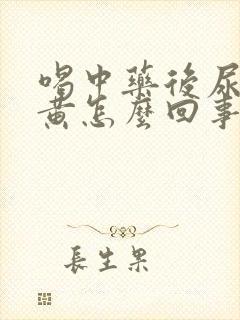 喝中藥後尿
黃怎麼回事
長生果